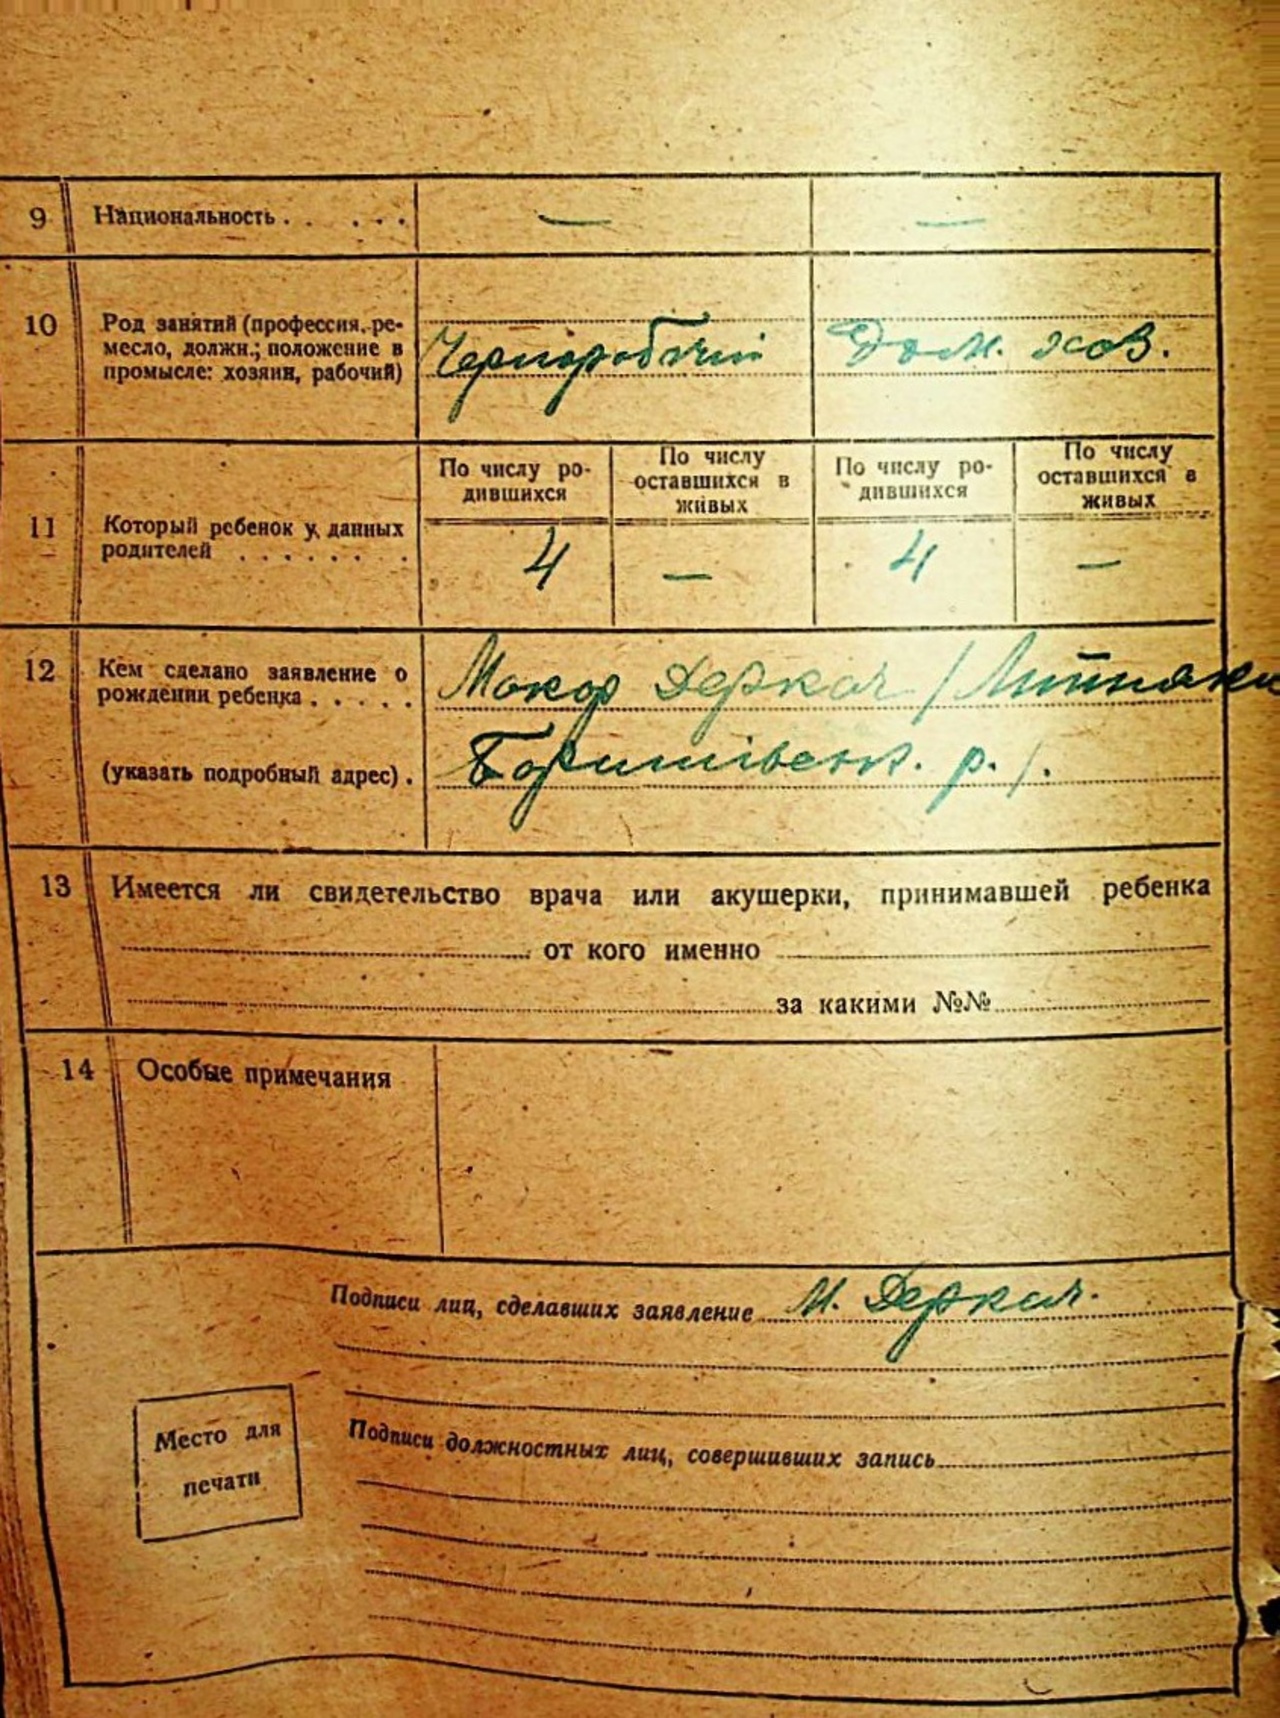 9 Национальность . . . . . — —
10 Род занятий (профессия, ре-
месло, должн.; положение в
промысле: хозяин, рабочий)
Черноробочий Дом. хоз.
По числу ро-
дившихся
По числу
оставшихся в
живых
По числу ро-
дившихся
По числу
оставшихся в
живых
11 Который ребенок у данных
родителей . . . . . . .
4 — 4 —
12 Кем сделано заявление о
рождении ребенка . . . . .
(указать подробный адрес) .
Макар Деркач /
р. /.
13 Имеется ли свидетельство врача или акушерки, принимавшей ребенка
от кого именно
за какими №№
14 Особые примечания
Подписи лиц, сделавших заявление М. Деркач.
Место для
печати
Подписи должностных лиц, совершивших запись